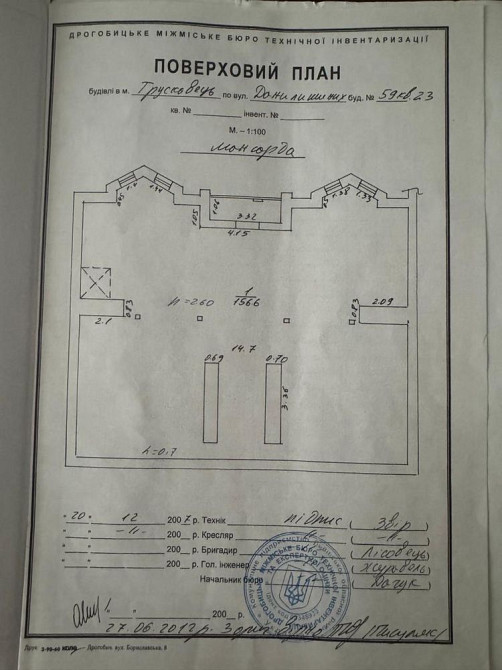 ДРОГОБИЦЬКЕ МІЖМІСЬКЕ БЮРО ТЕХНІЧНОЇ ІНВЕНТАРИЗАЦІЇ
ПОВЕРХОВИЙ ПЛАН
будівлі в м. Трускавець по вул. Данилишиних буд. № 59 кв. 23
кв. № інвент. №
М. – 1:100
мансарда
0.95 1.4 1.34 1.05 1.06 3.32 4.15 0.5 1.38 1.33
1
156.6
h=2.60
2.1 0.83 0.83 2.09
14.7
0.69 0.70
3.35
h=0.7
" 20 " 12 200 7 р. Технік підпис Звір
" " -||- 200 р. Кресляр -||- -||-
" " 200 р. Бригадир Лісовець
" " 200 р. Гол. інженер Журавель
Начальник бюро
200 р.
27.06.2012 р. З ориг.
МІЖМІСЬКЕ БЮРО ТЕХНІЧНОЇ ІНВЕНТАРИЗАЦІЇ ТА ЕКСПЕРТНОЇ ОЦІНКИ
Дрогобич вул. Бориславська, 8